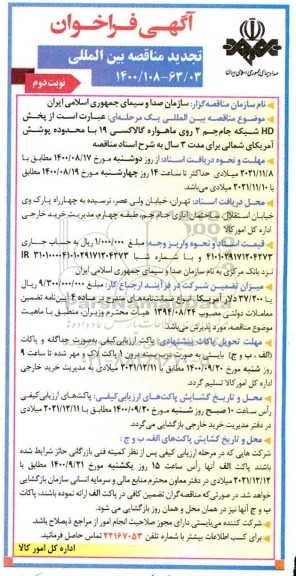 آگهی فراخوان
تجدید مناقصه بین المللی
۱۴۰۰/۱۰۸-۶۳/۰۳
نوبت دوم
صدا و سیمای جمهوری اسلامی ایران
نام سازمان مناقصه گزار: سازمان صدا و سیمای جمهوری اسلامی ایران
موضوع مناقصه بین المللی یک مرحله‌ای: عبارت است از پخش
HD شبکه جام‌جم ۲ روی ماهواره گالاکسی ۱۹ با محدوده پوشش
آمریکای شمالی برای مدت ۳ سال به شرح اسناد مناقصه
مهلت و نحوه دریافت اسناد: از روز دوشنبه مورخ ۱۴۰۰/۰۸/۱۷ مطابق با
۲۰۲۱/۱۱/۸ میلادی حداکثر تا ساعت ۱۴ روز چهارشنبه مورخ ۱۴۰۰/۰۸/۱۹
مطابق با ۲۰۲۱/۱۱/۱۰ میلادی می‌باشد.
محل دریافت اسناد: تهران، خیابان ولی عصر، نرسیده به چهارراه پارک وی
خیابان استقلال، ساختمان اداری جام جم، طبقه چهارم، مدیریت خرید خارجی
اداره کل امور کالا
قیمت اسناد و نحوه واریز وجه: مبلغ ۱/۰۰۰/۰۰۰ ریال به حساب جاری
۴۱۰۱۰۲۹۷۱۲۰۴۲۷۳ و با شماره شبا
نزد بانک مرکزی به نام سازمان صدا و سیمای جمهوری اسلامی ایران
میزان تضمین شرکت در فرآیند ارجاع کار: مبلغ ۹/۳۰۰/۰۰۰/۰۰۰ ریال
یا ۳۷/۲۰۰ دلار آمریکا (انواع ضمانت‌نامه‌های مندرج در ماده ۴ آیین‌نامه تضمین
معاملات دولتی مصوب ۱۳۹۴/۰۸/۲۴ هیأت محترم وزیران، منطبق با ماهیت
موضوع مناقصه، مورد پذیرش می‌باشد.
مهلت تحویل پاکات پیشنهادی: پاکت ارزیابی کیفی به‌صورت جداگانه و پاکات
(الف، ب و ج) بایستی به صورت دربسته درون ۱ پاکت لاک و مهر شده تا ساعت ۹
روز شنبه مورخ ۱۴۰۰/۰۹/۲۰ مطابق ۲۰۲۱/۱۲/۱۱ میلادی به مدیریت خرید خارجی
اداره کل امور کالا تسلیم گردد.
محل و تاریخ گشایش پاکت‌های ارزیابی کیفی: پاکت‌های ارزیابی کیفی
رأس ساعت ۱۰ صبح روز شنبه مورخ ۱۴۰۰/۰۹/۲۰ مطابق با ۲۰۲۱/۱۲/۱۱ میلادی
در دفتر مدیریت خرید خارجی بازگشایی می‌گردد.
محل و تاریخ گشایش پاکت‌های الف، ب و ج:
شرکت هایی که در مرحله ارزیابی کیفی پس از نظر کمیته فنی بازرگانی حائز شرایط شده
باشند پاکت الف آنها رأس ساعت ۱۵ روز یکشنبه مورخ ۱۴۰۰/۹/۲۱ مطابق با
۲۰۲۱/۱۲/۱۲ میلادی در دفتر معاون محترم منابع مالی و سرمایه انسانی سازمان بازگشایی
خواهد شد. در صورتی که مناقصه گران تضمین کافی در پاکت الف ارائه نموده باشند، پاکات
ب و ج آنها نیز در همان محل و همان روز بازگشایی می شود.
شرکت کننده می‌بایستی دارای مجوز صلاحیت انجام امور از مراجع ذیصلاح باشد.
برای کسب اطلاعات بیشتر با شماره تلفن ۲۲۱۶۷۰۵۳ تماس حاصل فرمائید.
اداره کل امور کالا